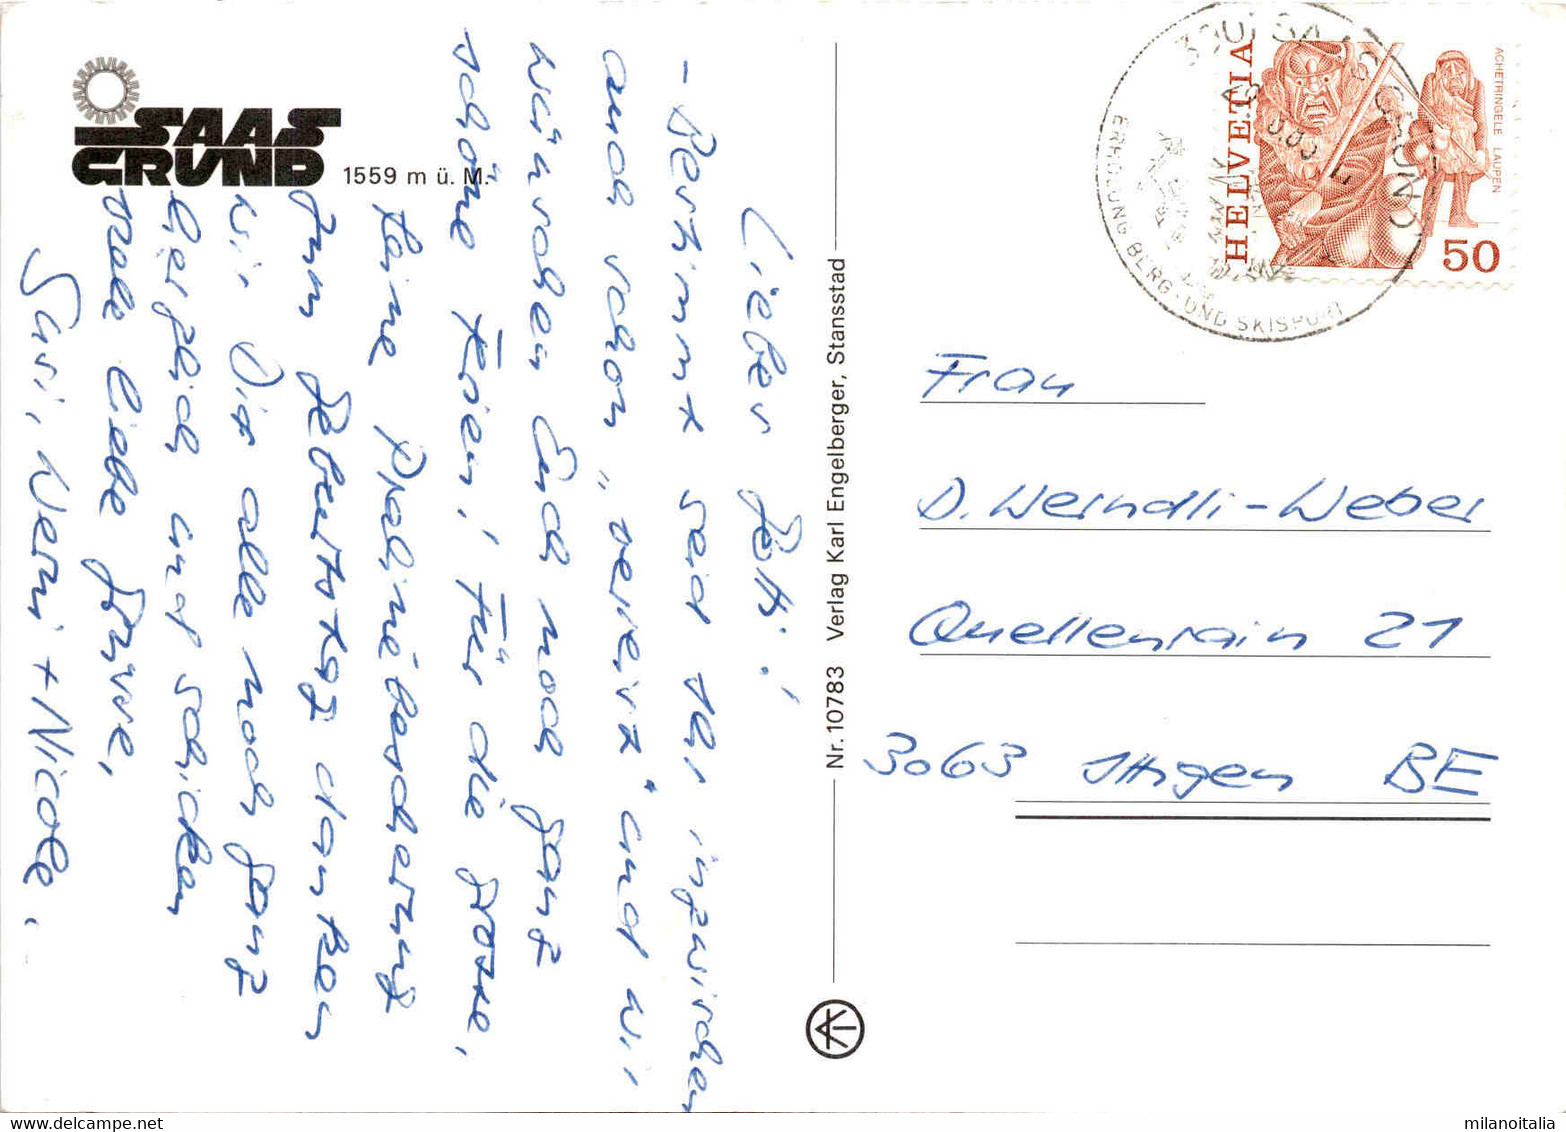 SAAS
GRUND
1559 m ü. M.
Lieber Petti!
- Bestimmt seid Ihr inzwischen
auch schon „verreist“ und wir
wünschen Euch noch ganz
schöne Ferien! Für die grosse,
feine Pralinébescherung
zum Geburtstag danken
wir Dir alle noch ganz
herzlich und schicken
viele liebe Grüsse,
Susi, Werni + Nicole.
Nr. 10783 Verlag Karl Engelberger, Stansstad
SAAS GRUND
ERHOLUNG BERG- UND SKISPORT
HELVETIA
ACHETRINGELE LAUPEN
50
Frau
D. Werndli-Weber
Quellenrain 21
3063 Ittigen BE
milanoitalia